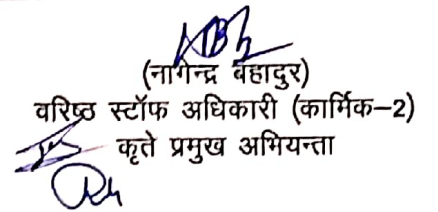 (नागेन्द्र बहादुर)
वरिष्ठ स्टॉफ अधिकारी (कार्मिक–2)
कृते प्रमुख अभियन्ता